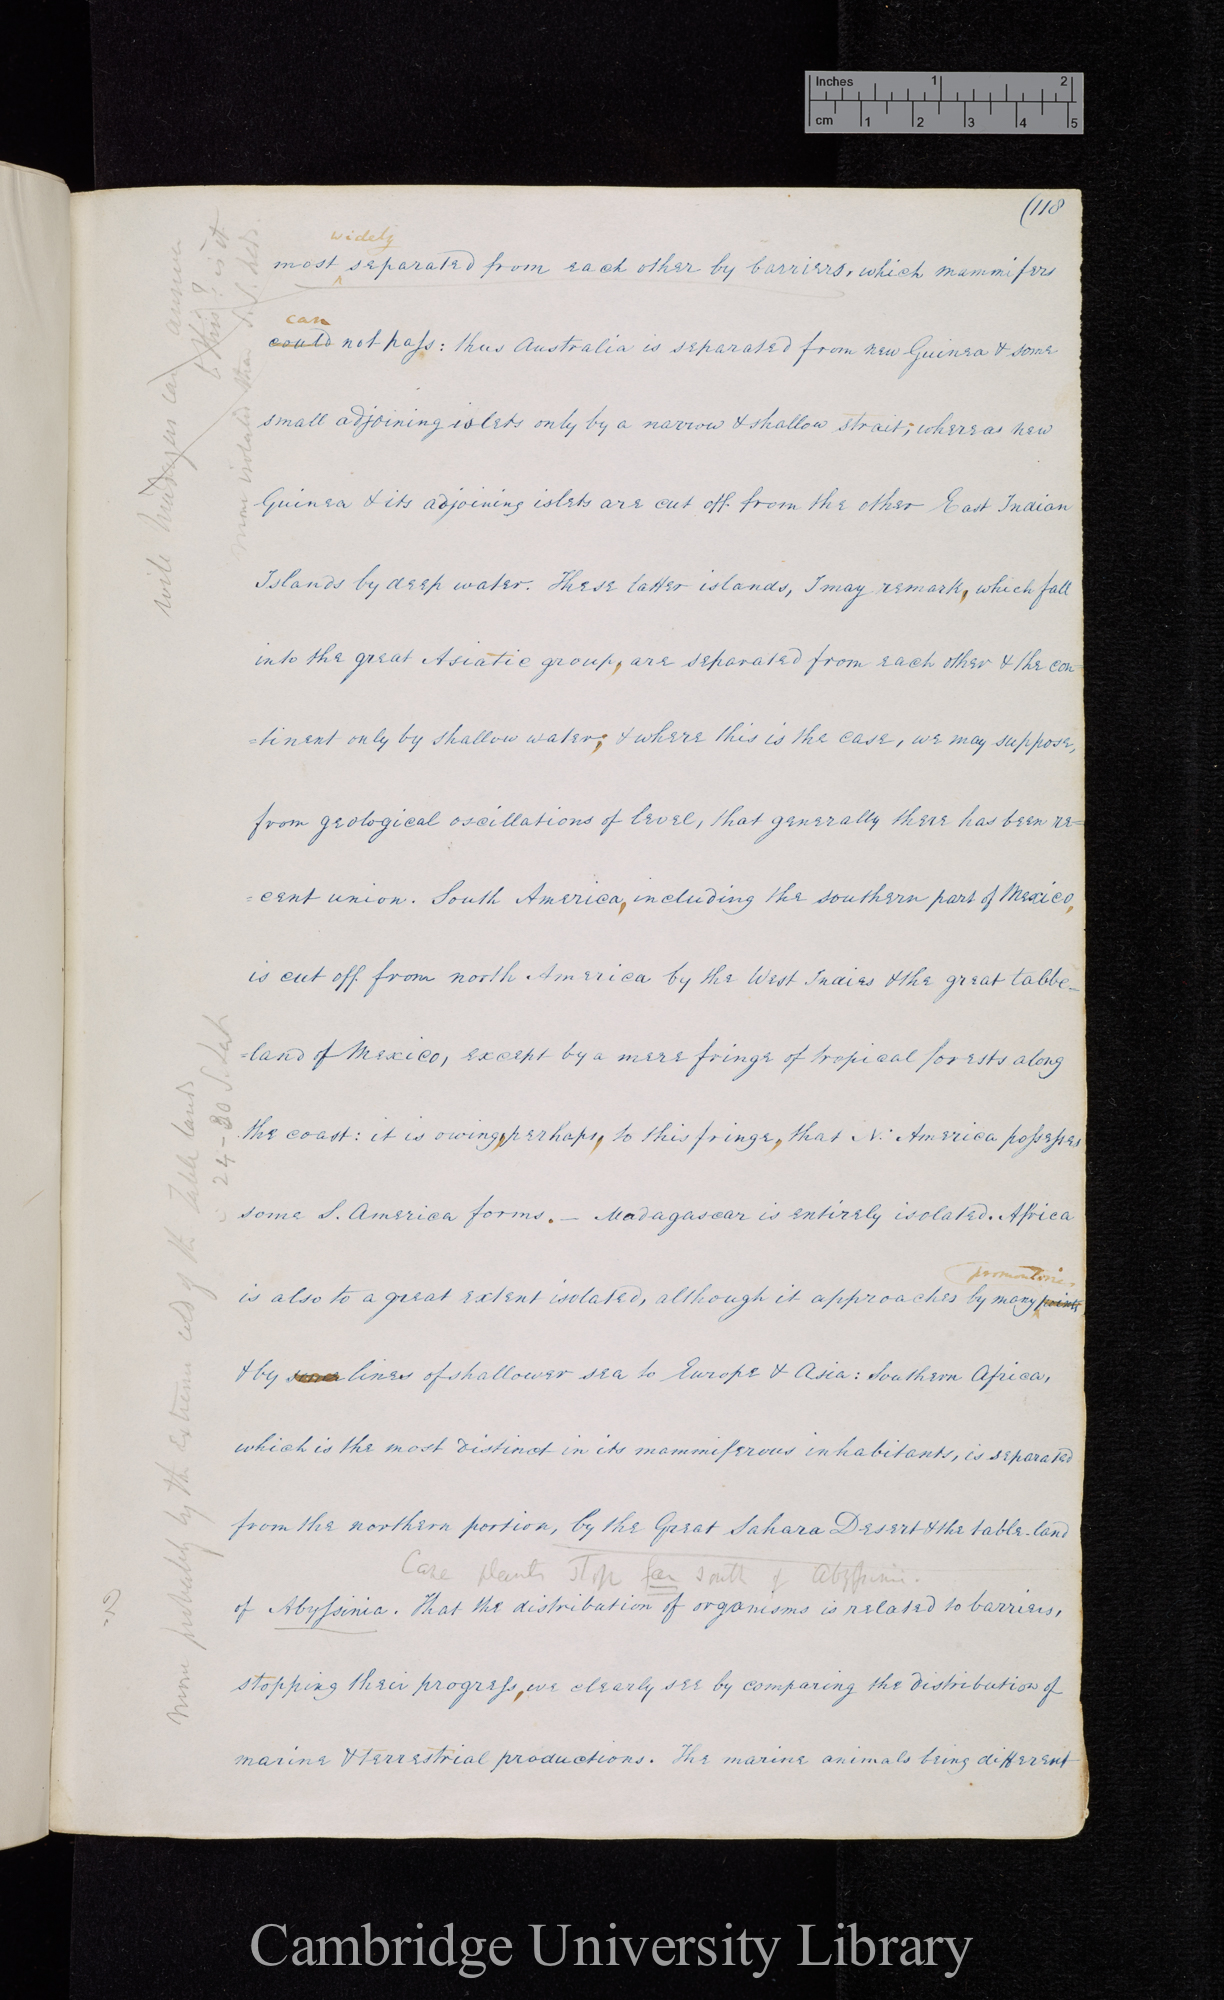 Inches 1 2
cm 1 2 3 4 5
(118
widely
most separated from each other by barriers, which mammifers
can
could not paſs: thus Australia is separated from new Guinea & some
small adjoining islets only by a narrow & shallow strait; whereas new
Guinea & its adjoining islets are cut off from the other East Indian
Islands by deep water. These latter islands, I may remark, which fall
into the great Asiatic group, are separated from each other & the con
=tinent only by shallow water; & where this is the case, we may suppose,
from geological oscillations of level, that generally there has been re=
=cent union. South America, including the southern part of Mexico,
is cut off from north America by the West Indies & the great table-
=land of Mexico, except by a mere fringe of tropical forests along
the coast: it is owing, perhaps, to this fringe, that N. America poſseſses
some S. America forms. — Madagascar is entirely isolated. Africa
promontories
is also to a great extent isolated, although it approaches by many points
& by some lines of shallower sea to Europe & Asia: Southern Africa,
which is the most distinct in its mammiferous inhabitants, is separated
from the northern portion, by the Great Sahara Desert & the table-land
Cape plants stop far south of Abyſsinia.
of Abyſsinia. That the distribution of organisms is related to barriers,
stopping their progreſs, we clearly see by comparing the distribution of
marine & terrestrial productions. The marine animals being different
answer
this? is it
more isolated than S. hed.
more probably by the extreme cold of the table land
24-30 S. Lat.
?
Cambridge University Library